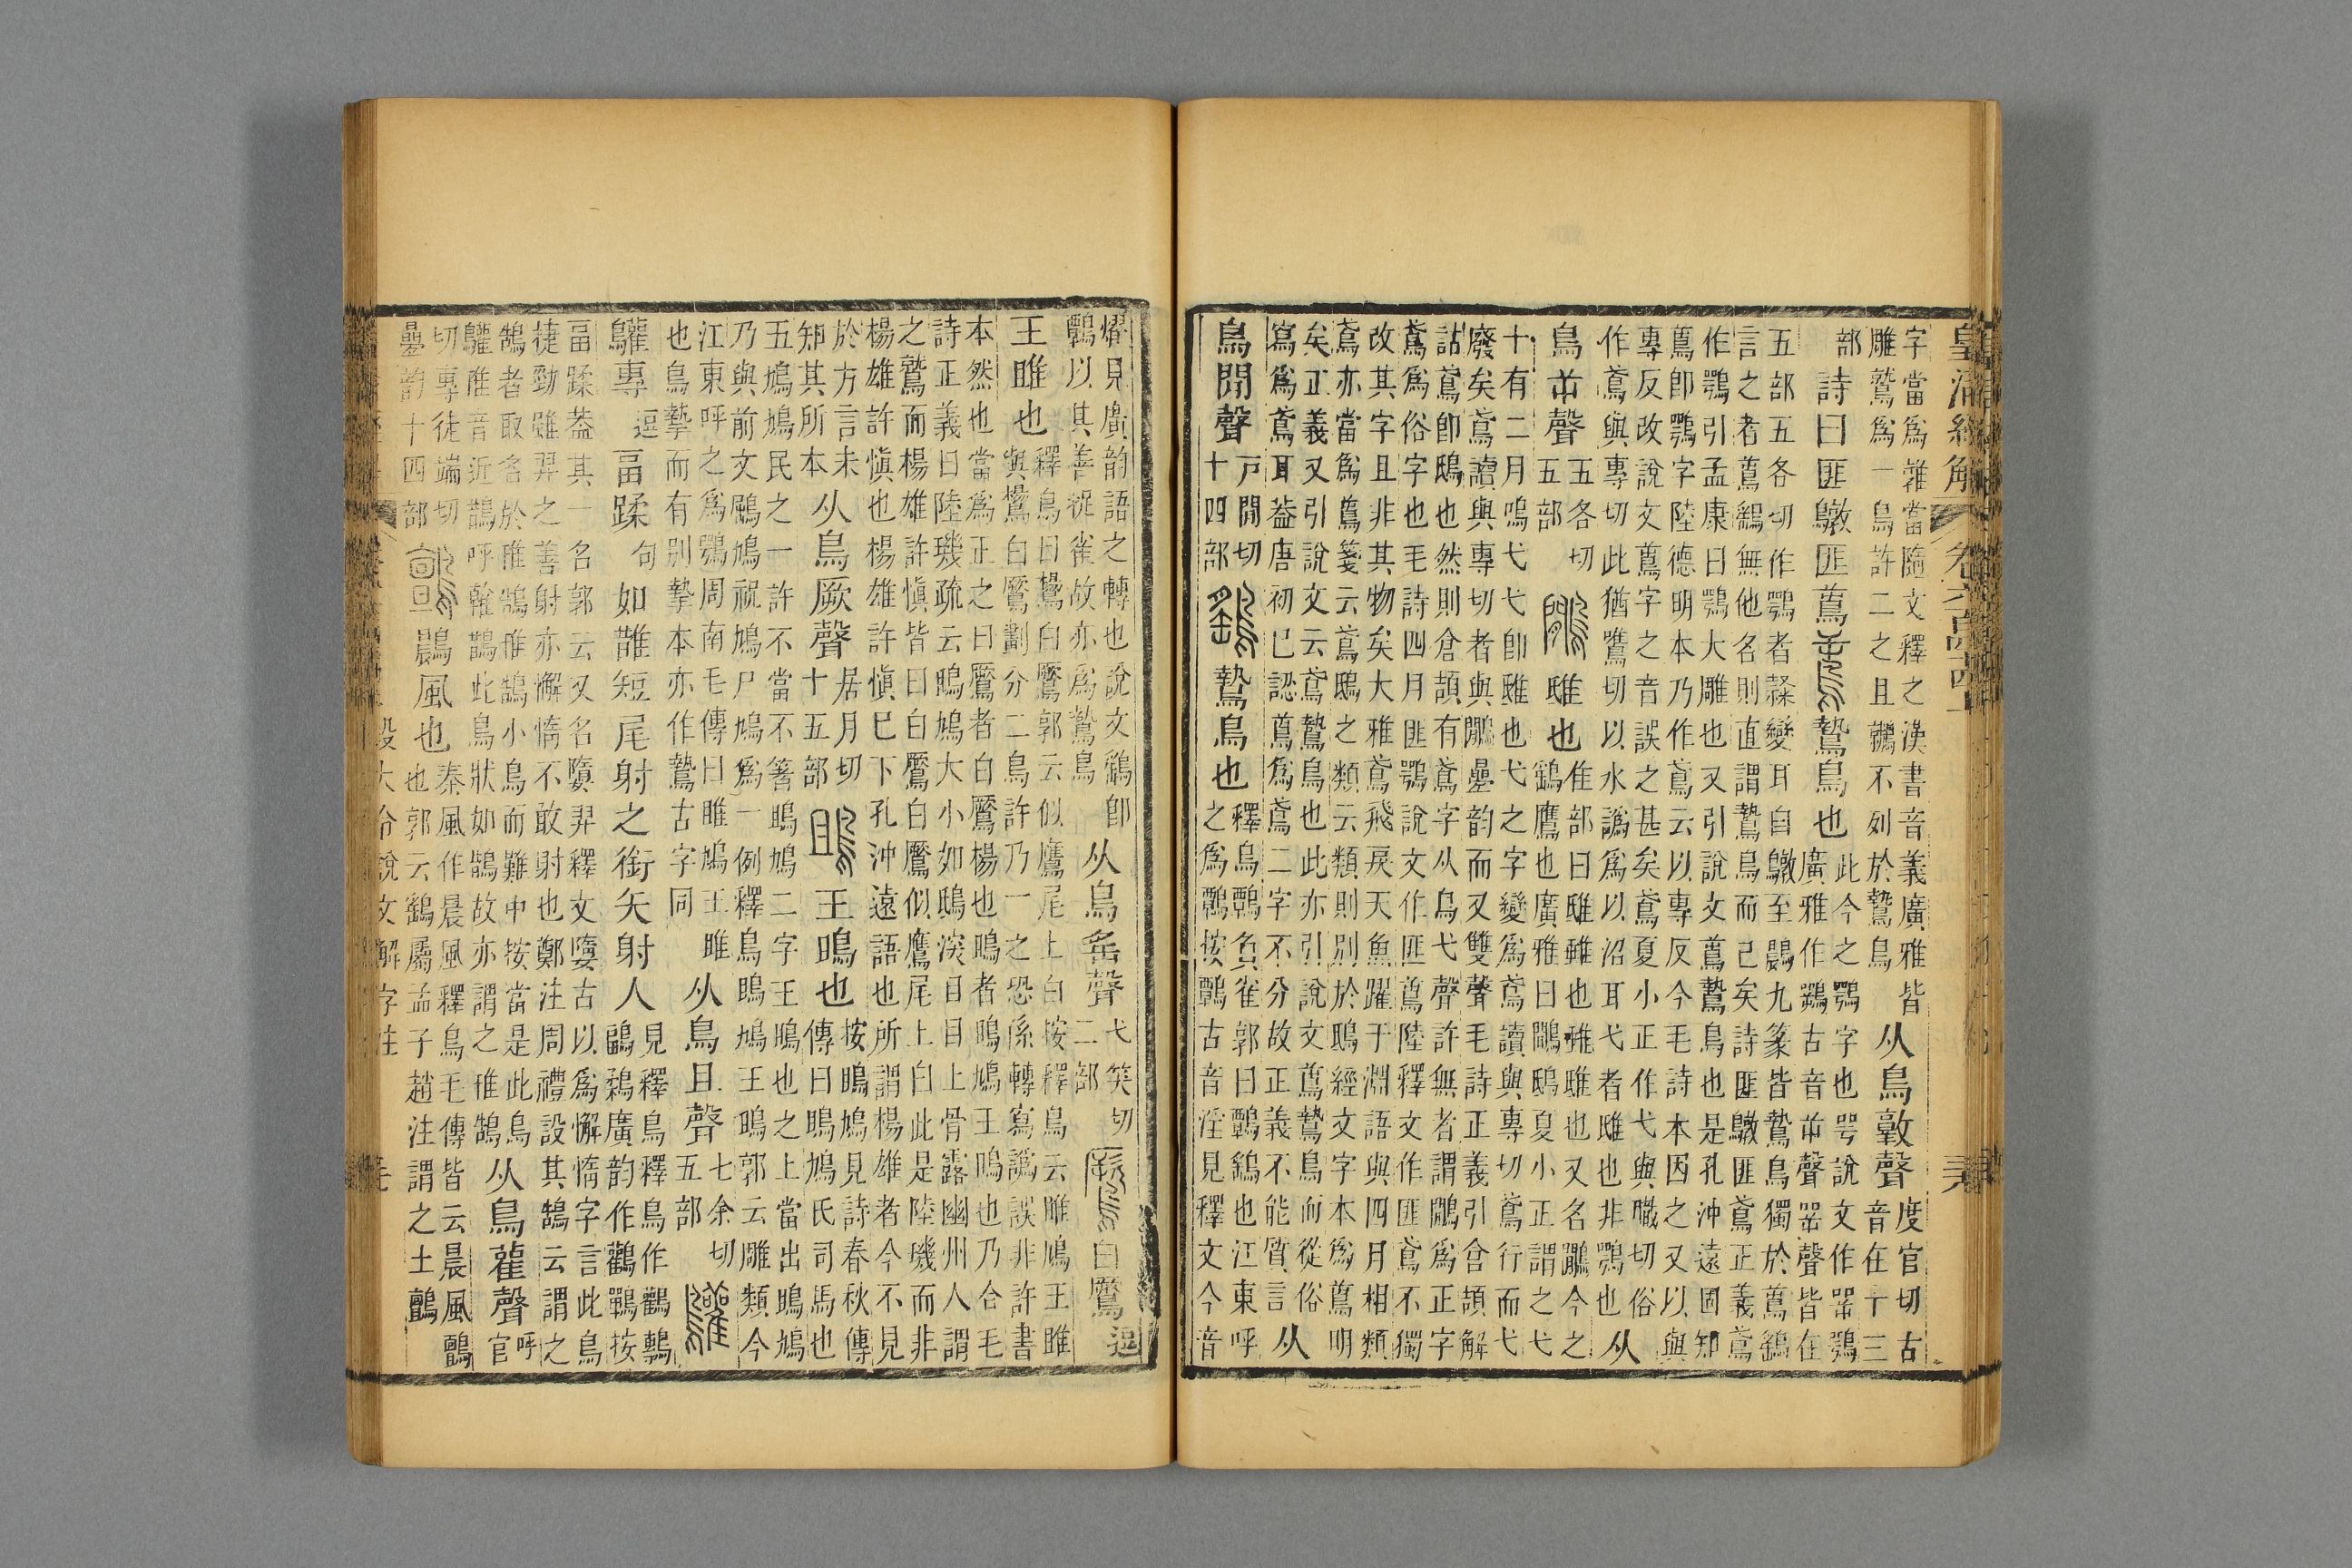 皇清經解 卷六百四十四
字當爲雜當隨文釋之漢書音義廣雅皆
雕鷙爲一鳥許二之且鷻不列於鷙鳥
从鳥敦聲
度官切古
音在十三
部
詩曰匪鷻匪鳶
鷙鳥也
此今之鶚字也咢說文作㖾鶚
廣雅作鷊古音屰聲㖾聲皆在
五部五各切作鶚者隸變耳自鷻至鷐九篆皆鷙鳥獨於鳶鷂
言之者鳶鷂無他名則直謂鷙鳥而已矣詩匪鷻匪鳶正義鳶
作鶚引孟康曰鶚大雕也又引說文鳶鷙鳥也是孔沖遠固知
鳶卽鶚字陸德明本乃作鳶云以專反今毛詩本因之又以與
專反改說文鳶字之音誤之甚矣鳶夏小正作弋與職切俗
作鳶與專切此猶鷕切以水譌爲以沼耳弋者䧑也非鶚也
从
鳥屰聲
五各切
五部
鷳
䧑也
隹部曰䧑
鷂鷹也廣雅曰鷳鴟夏小正謂之弋
十有二月鳴弋弋卽䧑也弋之字變爲鳶讀與專切鳶行而弋
廢矣鳶讀與專切者與鷳曡韵而又雙聲毛詩正義引倉頡解
詁鳶卽鴟也然則倉頡有鳶字从鳥弋聲許無者謂鷳爲正字
鳶爲俗字也毛詩四月匪鶚說文作匪鳶陸釋文作匪鳶不獨
改其字且非其物矣大雅鳶飛戾天魚躍于淵語與四月相類
鳶亦當爲鳶箋云鳶鴟之類云類則別於鴟經文字本爲鳶明
矣正義又引說文云鳶鷙鳥也此亦引說文鳶鷙鳥而從俗
寫爲鳶耳葢唐初已認鳶爲鳶二字不分故正義不能質言
从
鳥閒聲
戸閒切
十四部
鷂
鷙鳥也
釋鳥鷣負雀郭曰鷣鷂也江東呼
之爲鷣按鷣古音淫見釋文今音
燿見廣韵語之轉也說文鷂卽
鷣以其善捉雀故亦爲鷙鳥
从鳥䍃聲
弋笑切
二部
鷢
白鷢
逗
王雎也
釋鳥曰鸉白鷢郭云似鷹尾上白按釋鳥云雎鳩王雎
與鸉白鷢劃分二鳥許乃一之恐係轉寫譌誤非許書
本然也當爲正之曰鷢者白鷢楊也鴡者鴡鳩王鴡也乃合毛
詩正義曰陸璣疏云鴡鳩大小如鴟深目目上骨露幽州人謂
之鷲而楊雄許愼皆曰白鷢白鷢似鷹尾上白此是陸璣而非
楊雄許愼也楊雄許愼已下孔沖遠語也所謂楊雄者今不見
於方言未
知其所本
从鳥厥聲
居月切
十五部
鴡
王鴡也
按鴡鳩見詩春秋傳
傳曰鴡鳩氏司馬也
五鳩鳩民之一許不當不箸鴡鳩二字王鴡也之上當出鴡鳩
乃與前文鶌鳩祝鳩尸鳩爲一例釋鳥鴡鳩王鴡郭云雕類今
江東呼之爲鶚周南毛傳曰雎鳩王雎
也鳥摯而有別摯本亦作鷙古字同
从鳥且聲
七余切
五部
鸛
鸛專
逗
畐蹂
句
如䧿短尾射之銜矢射人
見釋鳥釋鳥作鸛鷒
鶝鶔廣韵作鸛鷤按
畐蹂葢其一名郭云又名䲿羿釋文䲿古以爲懈惰字言此鳥
捷勁雖羿之善射亦懈惰不敢射也鄭注周禮設其鵠云謂之
鵠者取名於䧿鵠䧿鵠小鳥而難中按當是此鳥
鸛䧿音近鵲呼雗鵲此鳥狀如鵲故亦謂之䧿鵠
从鳥雚聲
呼
官
切專徒端切
曡韵十四部
鷐
鷐風也
秦風作晨風釋鳥毛傳皆云晨風鸇
也郭云鷂屬孟子趙注謂之土鸇